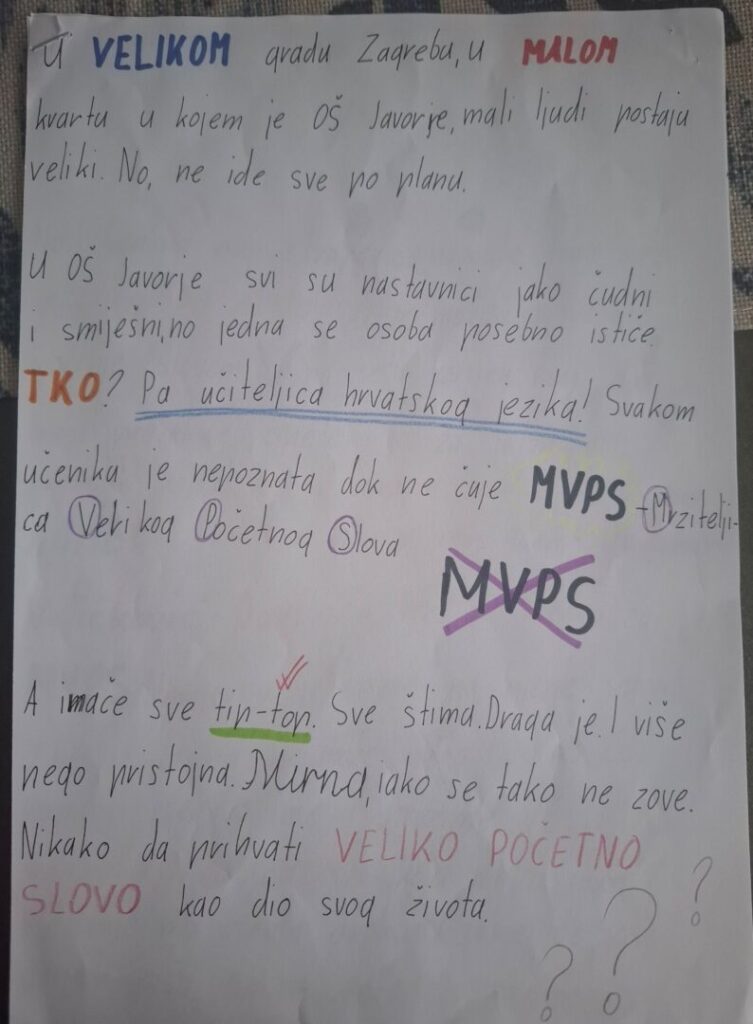 U VELIKOM gradu Zagrebu, u MALOM
kvartu u kojem je OŠ Javorje, mali ljudi postaju
veliki. No, ne ide sve po planu.
U OŠ Javorje svi su nastavnici jako čudni
i smiješni, no jedna se osoba posebno ističe.
TKO? Pa učiteljica hrvatskog jezika! Svakom
učeniku je nepoznata dok ne čuje MVPS-Mrzitelji-
ca Velikog Početnog Slova
MVPS
A inače sve tip-top. Sve štima. Draga je. I više
nego pristojna. Mirna, iako se tako ne zove.
Nikako da prihvati VELIKO POČETNO
SLOVO kao dio svog života.
? ? ?